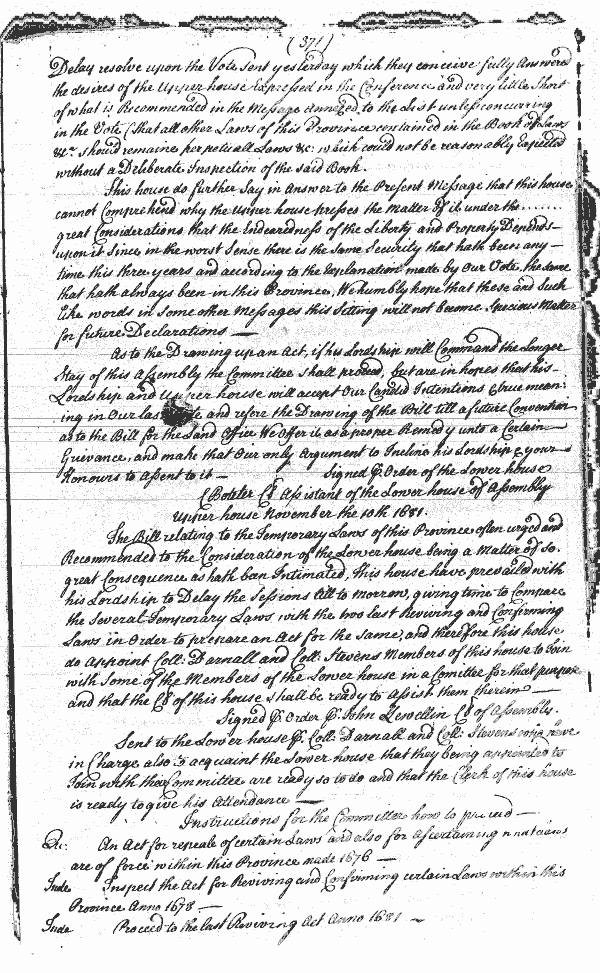 (371)
Delay resolve upon the Vote sent yesterday which they conceive fully Answers
the desires of the Upper house Expressed in the Conference and very little Short
of what is Recommended in the Message Annexed to the List unless concurring
in the Vote (that all other Laws of this Province contained in the Book of Laws
&ca Should remaine perpetuall Laws &c: which could not be reasonably Expected
without a Deliberate Inspection of the said Book.
This house do further Say in Answer to the Present Message that this house
cannot Comprehend why the Upper house presses the Matter of it under the.......
great Considerations that the Endearedness of the Liberty and Property Depends
upon it Since in the worst Sense there is the same Security that hath been any
time this three years and according to the Explanation made by Our Vote, the same
that hath always been in this Province, We humbly hope that these and Such
like words in Some other Messages this Sitting will not become Specious Matter
for future Declarations —
As to the Drawing up an Act, if his Lordship will Command the Longer
Stay of this Assembly the Committee shall proceed, but are in hopes that his
Lordship and Upper house will accept Our Candid Intentions & true mean:
ing in Our last and refere the Drawing of the Bill till a future Convention
as to the Bill for the Land Office We Offer it as a proper Remedy unto a Certain
Grievance, and make that Our only Argument to Incline his Lordship & your
Honours to Assent to it — Signed p. Order of the Lower house
C Boteler Cl Assistant of the Lower house of Assembly
Upper house November the 10th 1681.
The Bill relating to the Temporary Laws of this Province often urged and
Recommended to the Consideration of the Lower house being a Matter of So.
great Consequence as hath been Intimated, this house have prevailed with
his Lordship to Delay the Sessions till to Morrow, giving time to Compare
the Severall Temporary Laws with the two last Reviving and Confirming
Laws in Order to prepare an Act for the Same, and therefore this house
do appoint Coll: Darnall and Coll: Stevens Members of this house to Join
with Some of the Members of the Lower house in a Comittee for that purpose
and that the Cl of this house shall be ready to Assist them therein —
Signed p. Order p. John Llewellin Cl of Assembly.
Sent to the Lower house p. Coll: Darnall and Coll: Stevens who have
in Charge also to acquaint the Lower house that they being appointed to
Join with the Committee are ready so to do and that the Clerk of this house
is ready to give his Attendance —
Instructions for the Committee how to proceed —
An Act for repeale of certain Laws and also for Ascertaining
are of force within this Province made 1676 —
Inspect the Act for Reviving and Confirming certain Laws within this
Province Anno 1678 —
Proceed to the last Reviving Act Anno 1681 —